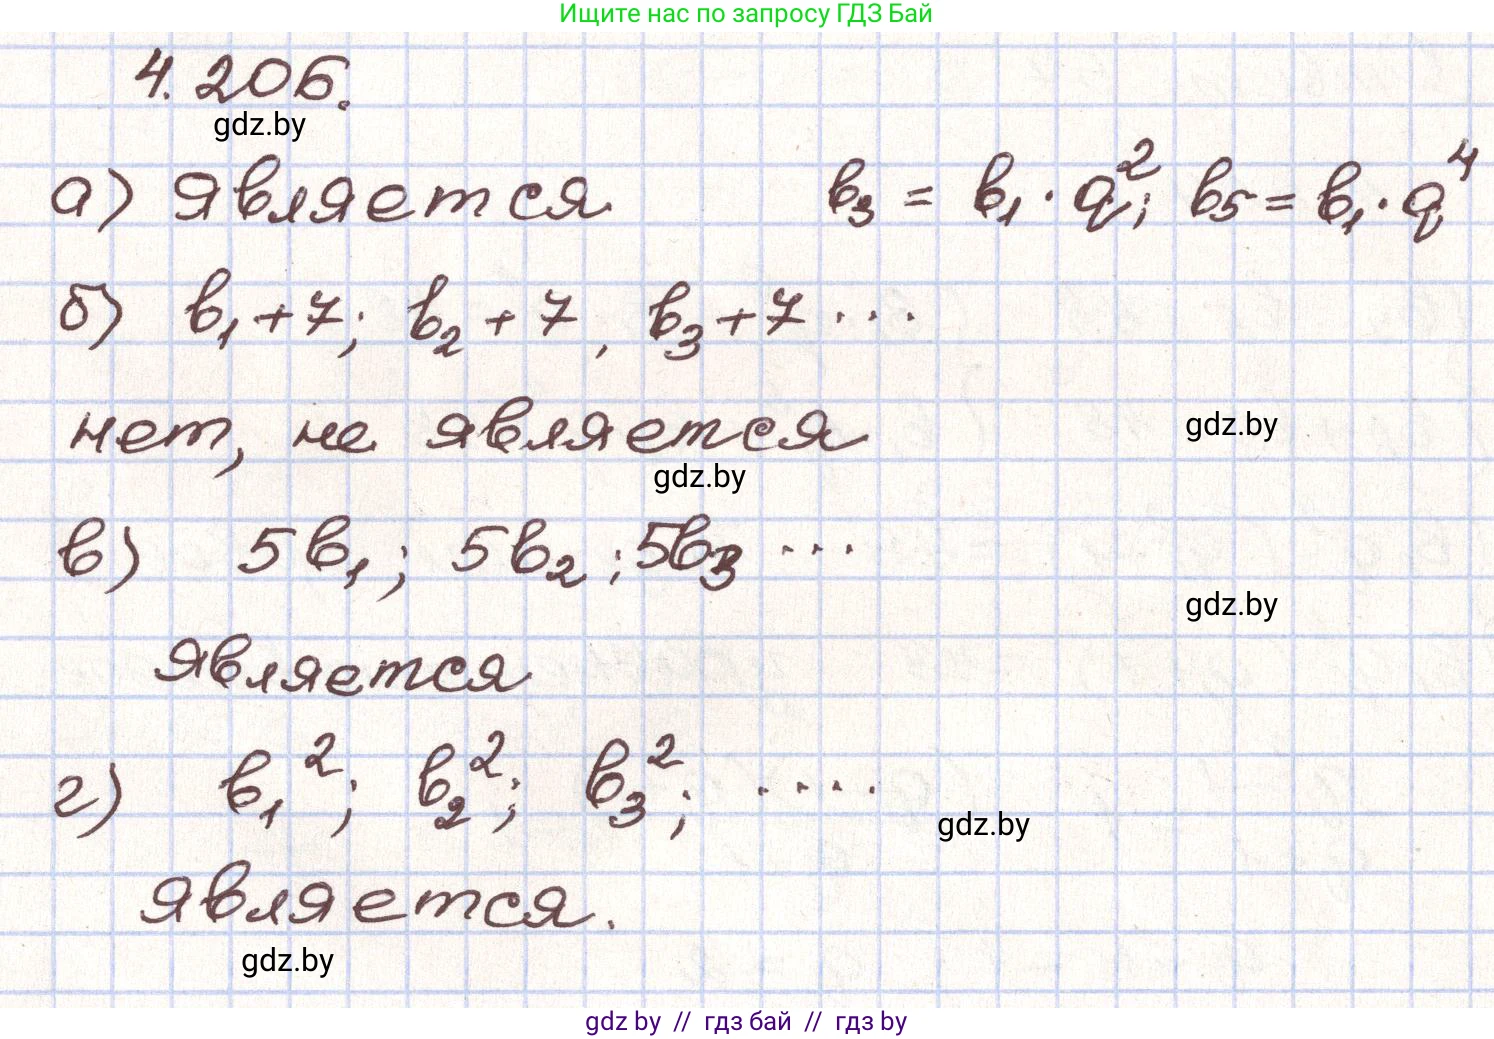 Ищите нас по запросу ГДЗ Бай
4.206.
gdz.by
а) является b₃ = b₁ · q²; b₅ = b₁ · q⁴
б) b₁ + 7; b₂ + 7, b₃ + 7 ...
нет, не является
gdz.by
gdz.by
в) 5b₁; 5b₂; 5b₃ ...
gdz.by
является
г) b₁²; b₂²; b₃²; ....
gdz.by
является.
gdz.by
gdz by // гдз бай // гдз by